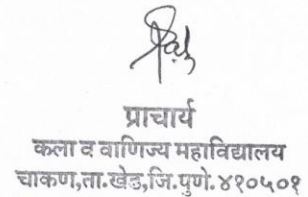 प्राचार्य
कला व वाणिज्य महाविद्यालय
चाकण,ता.खेड,जि.पुणे.४१०५०१